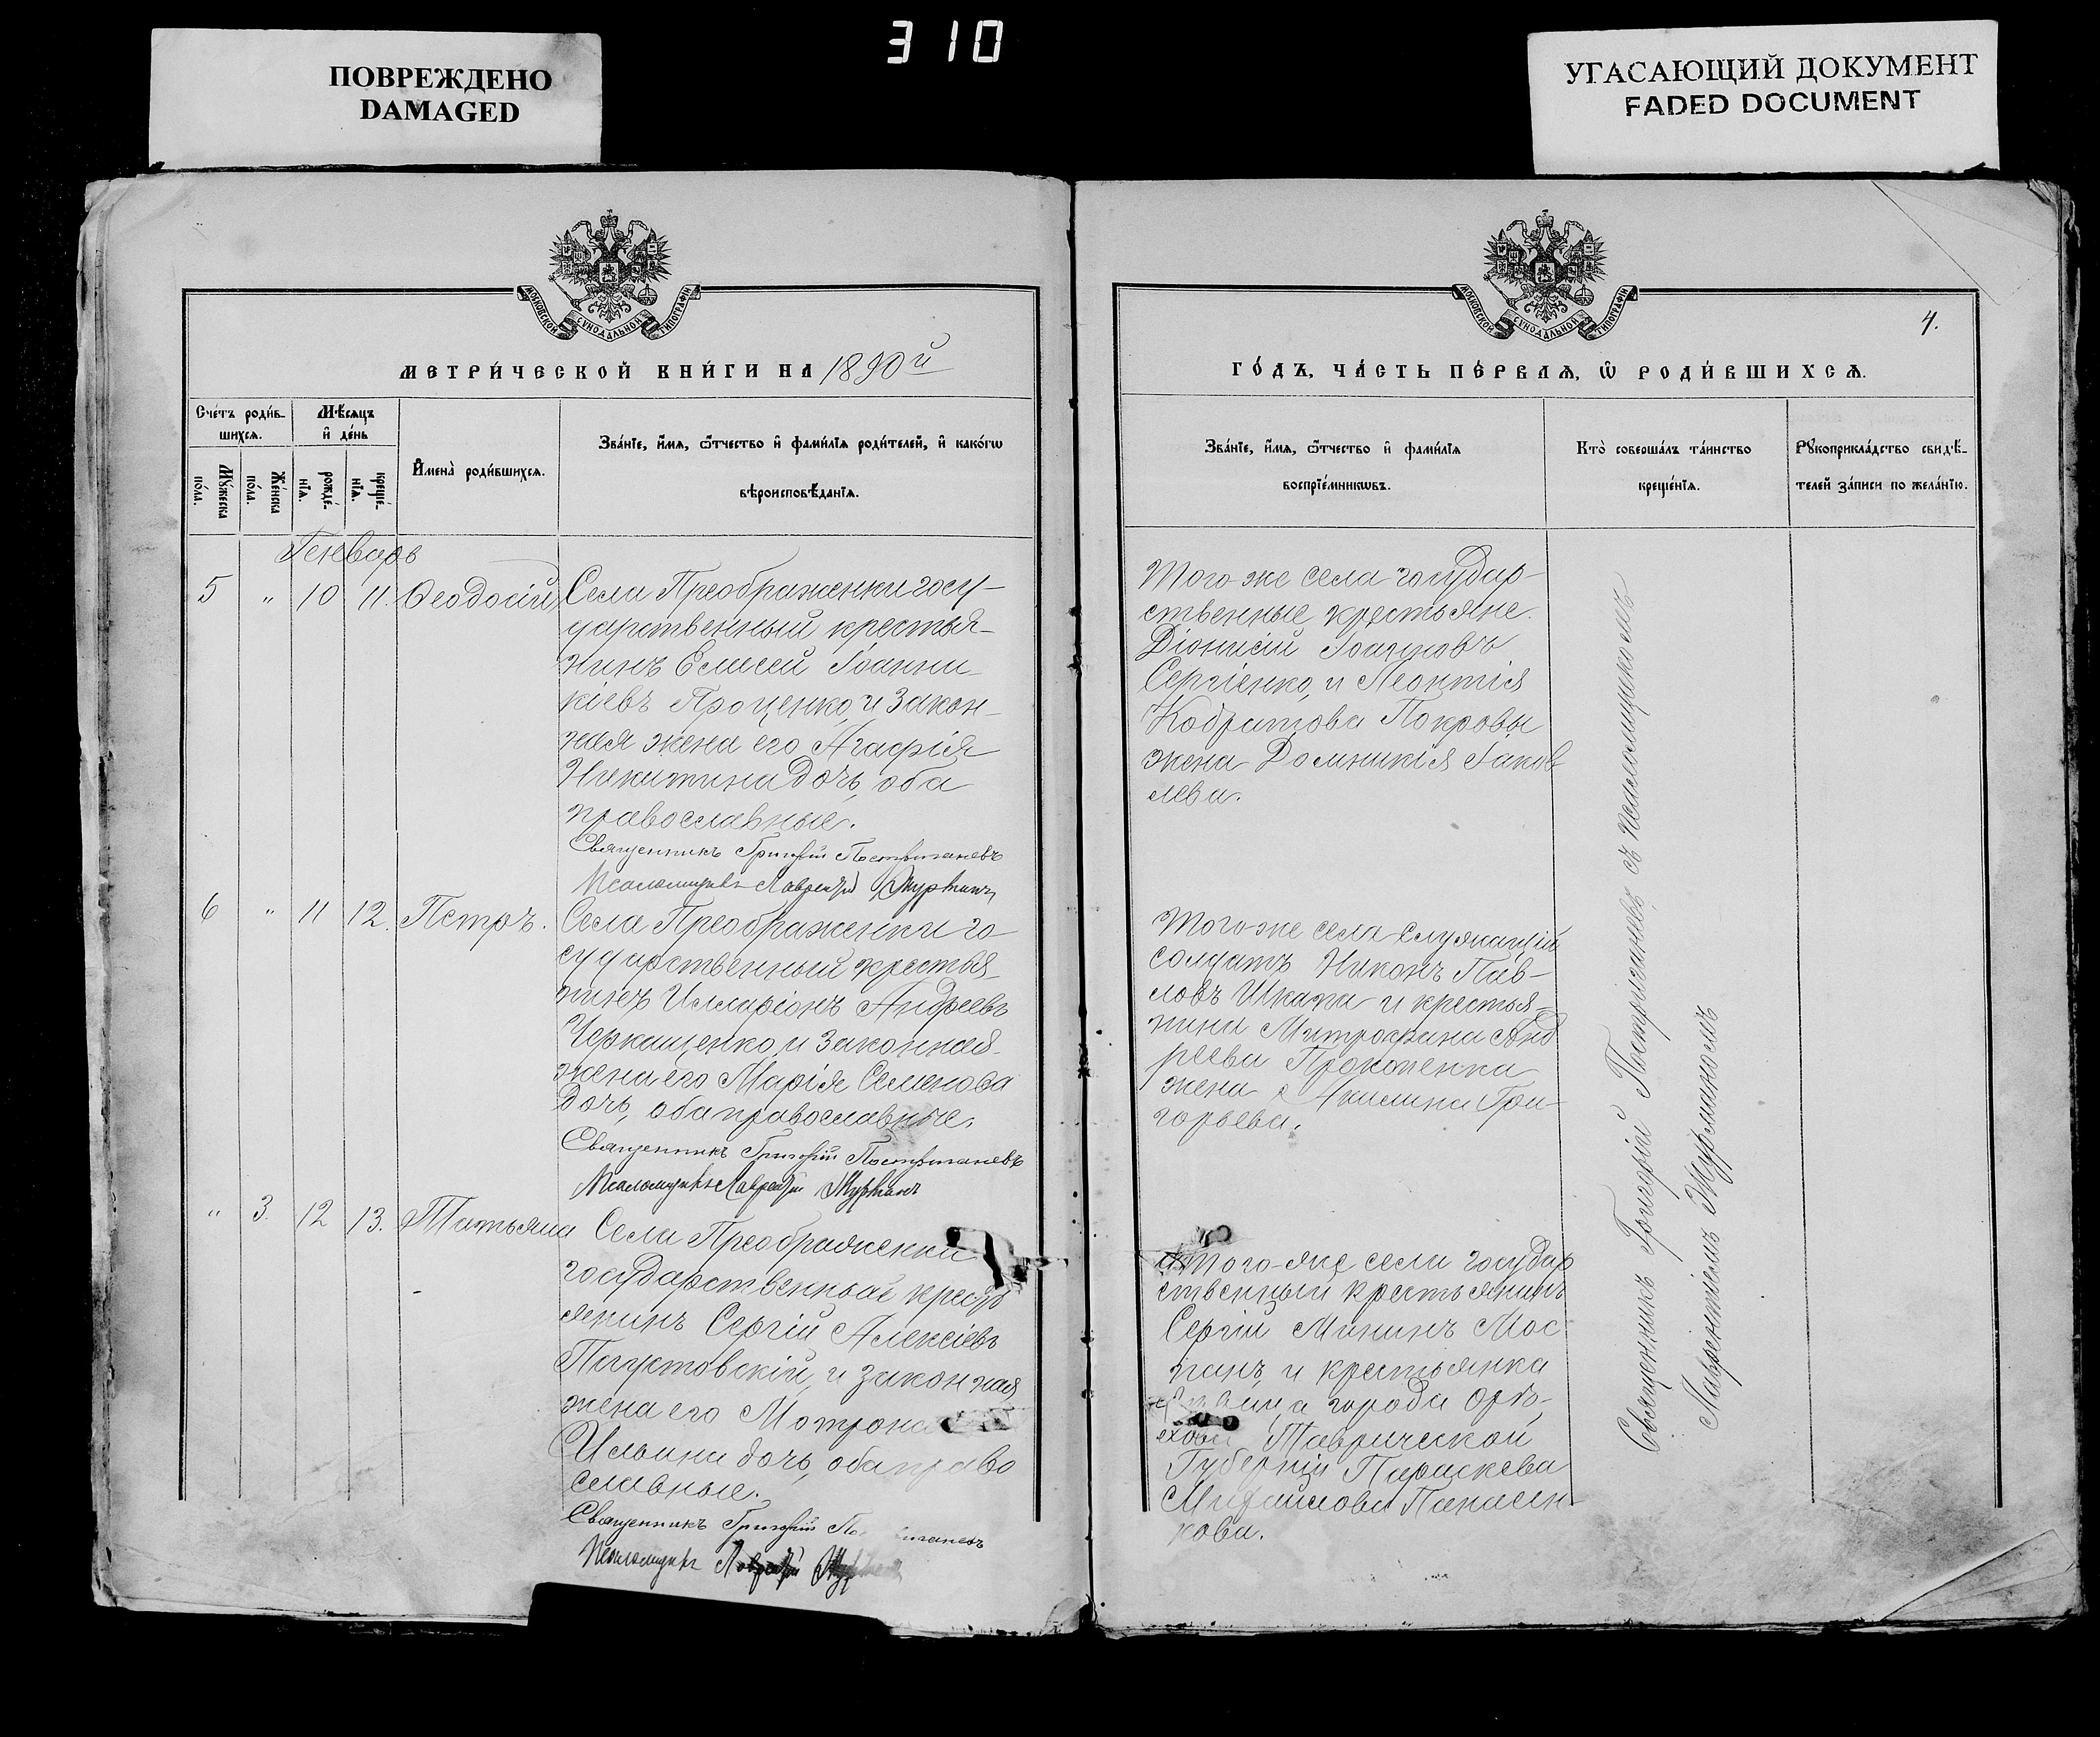 ПОВРЕЖДЕНО
DAMAGED
310
УГАСАЮЩИЙ ДОКУМЕНТ
FADED DOCUMENT
МОСКОВСКОЙ СУНОДАЛЬНОЙ ТИПОГРАФІИ
МЕТРИ́ЧЕСКОЙ КНИ́ГИ НА 1890й
Сче́тъ роди́в-
шихся.
Мѣ́сяцъ
и҆ де́нь
Мꙋ́жеска
по́ла.
Же́нска
по́ла.
рожде́-
нїя.
креще́-
нїя.
И҆мена̀ роди́вшихся.
Зва́нїе, и҆́мя, ѻ҆́тчество и҆ фами́лїя роди́телей, и҆ како́гѡ
вѣроисповѣ́данїя.
Генварь
5 " 10 11. Ѳеодосій
Села Преображенки госу-
дарственный крестья-
нинъ Елисей Іоанни-
кіевъ Проценко, и закон-
ная жена его Агафія
Никитина дочь, оба
православные.
Священникъ Григорій Пострыганевъ
Псаломщикъ Лаврентій Журманъ
6 " 11 12. Петръ.
Села Преображенки го-
сударственный крестья-
нинъ Илларіонъ Андреевъ
Черкащенко, и законная
жена его Марія Семенова
дочь, оба православные.
Священникъ Григорій Пострыганевъ
Псаломщикъ Лаврентій Журманъ
" 3. 12 13. Татьяна
Села Преображенки
государственный кресть
янинъ Сергій Алексіевъ
и законная
жена его Мотрона
Ильина дочь, оба право
славные.
Священникъ Григорій
Псаломщикъ Лаврентій
МОСКОВСКОЙ СУНОДАЛЬНОЙ ТИПОГРАФІИ
4.
ГО́ДЪ, ЧА́СТЬ ПЕ́РВАЯ, Ѡ҆ РОДИ́ВШИХСЯ.
Зва́нїе, и҆́мя, ѻ҆́тчество и҆ фами́лїя
воспрїе́мникѡвъ.
Кто̀ соверша́лъ та́инство
креще́нїя.
Рꙋкоприкла́дство свидѣ́-
телей за́писи по жела́нїю.
Того-же села государ-
ственные крестьяне.
Діонисій Іоанновъ
Сергіенко, и Леонтія
Кодратова Покровы
жена Домникія Іаков
лева.
Того-же села служащій
солдатъ Никонъ Пав-
ловъ Шкапа и крестья-
нина Митрофана Анд
реева Прокопенка
жена Акилина Гри-
горьева.
Того-же села государ
ственный крестьянинъ
Сергій Мининъ Мос
панъ, и крестьянка
города Орѣ-
хова Таврической
Губерніи Параскева
Михайлова Панасен-
кова.
Священникъ Григорій Пострыганевъ съ псаломщикомъ
Лаврентіемъ Журманомъ